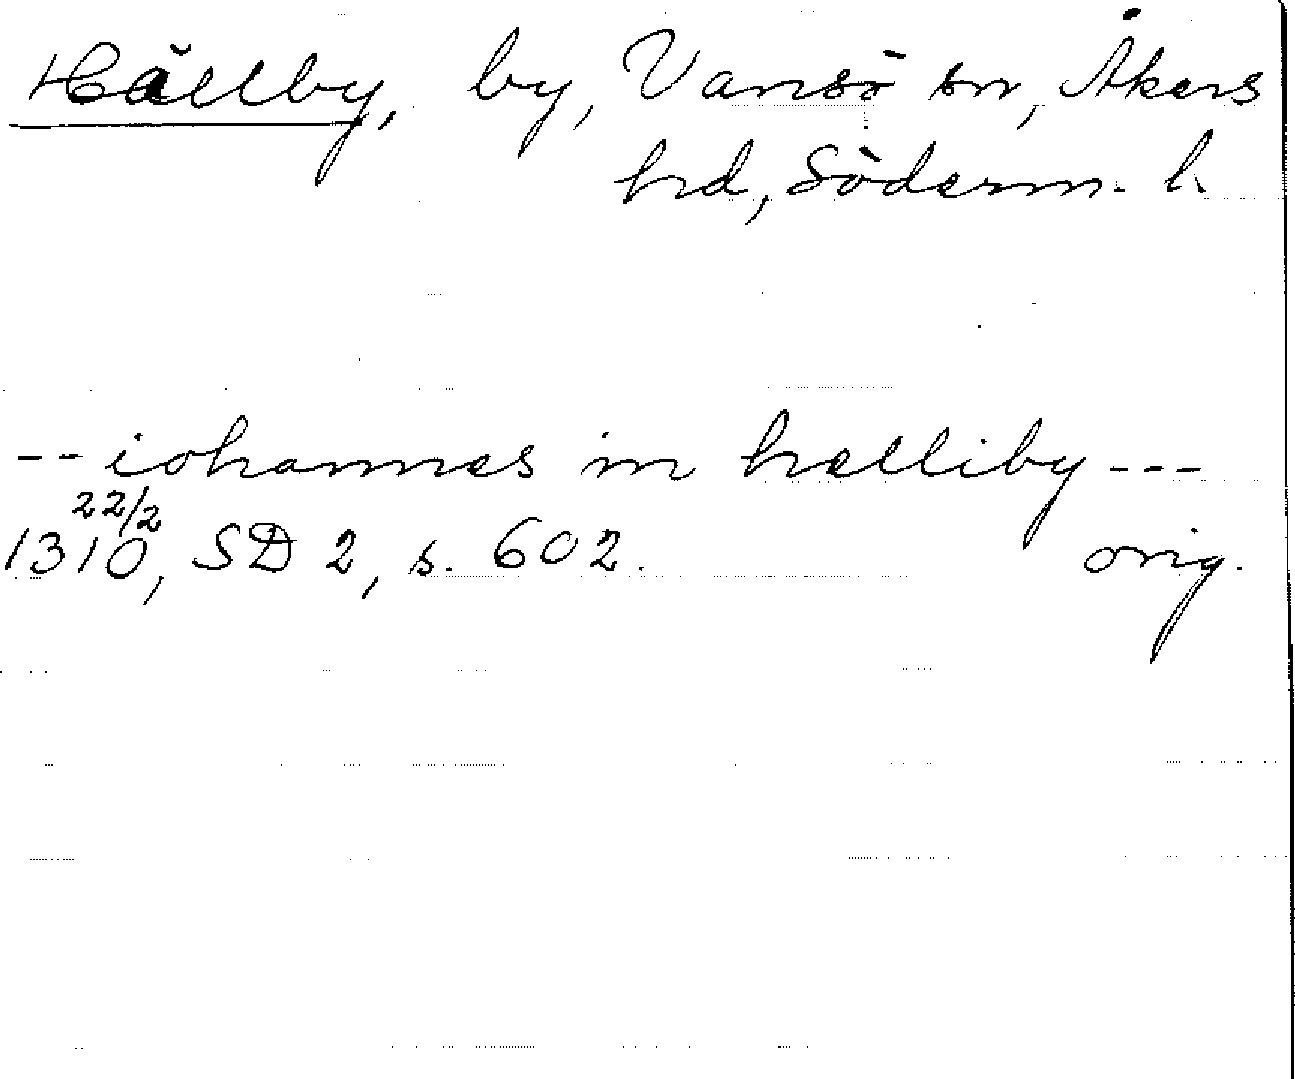 Hällby, by, Vansö sn, Åkers
hd, Söderm. l.
-- iohannes in hælliby ---
22/2
1310, SD 2, s. 602. orig.